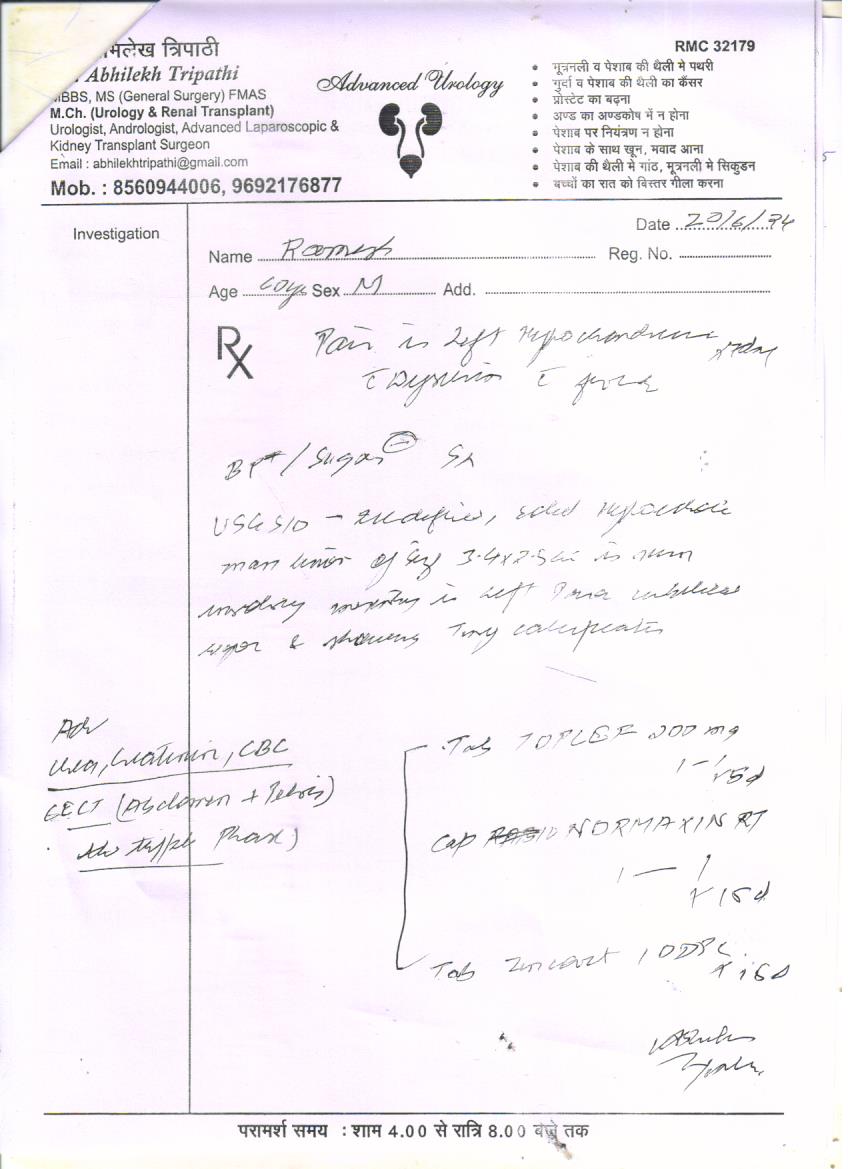 मिलेख त्रिपाठी
Abhilekh Tripathi
MBBS, MS (General Surgery) FMAS
M.Ch. (Urology & Renal Transplant)
Urologist, Andrologist, Advanced Laparoscopic &
Kidney Transplant Surgeon
Email : abhilekhtripathi@gmail.com
Mob. : 8560944006, 9692176877
Advanced Urology
RMC 32179
• मूत्रनली व पेशाब की थैली मे पथरी
• गुर्दा व पेशाब की थैली का कैंसर
• प्रोस्टेट का बढ़ना
• अण्ड का अण्डकोष में न होना
• पेशाब पर नियंत्रण न होना
• पेशाब के साथ खून, मवाद आना
• पेशाब की थैली मे गांठ, मूत्रनली मे सिकुडन
• बच्चों का रात को बिस्तर गीला करना
Investigation
Date 20/6/24
Name Ramesh Reg. No.
Age Sex M Add.
Rx
Pain in Left Hypochondrium
BP / Sugar
USG S/O - solid Hypoechoic
mass of size 3.4x2.5cm is seen
in Left Para umbilical
& showing Tiny calcification
Adv
Urea, Creatinin, CBC
CECT (Abdomen + Pelvis)
Phase)
Tab TOPCEF 200 mg
1-1 x 5d
Cap NORMAXIN RT
1 - 1
x 15d
Tab 1 OD
x 15d
परामर्श समय : शाम 4.00 से रात्रि 8.00 बजे तक